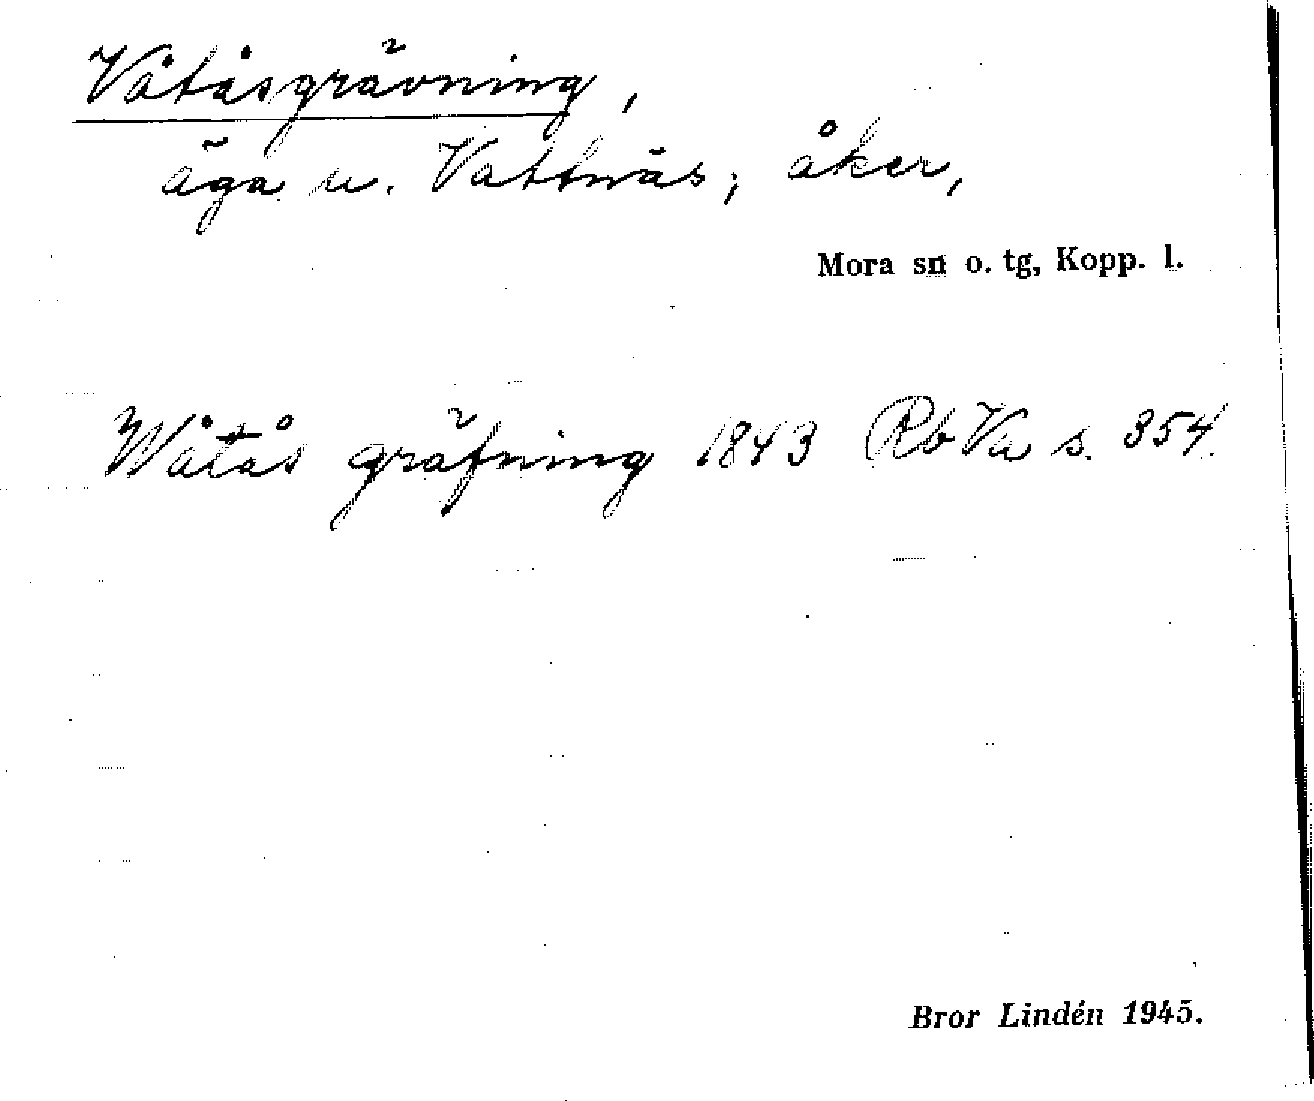 Våtåsgrävning,
äga u. Vattnäs; åker,
Mora sn o. tg, Kopp. l.
Wåtås gräfning 1843 RbVa s. 354.
Bror Lindén 1945.